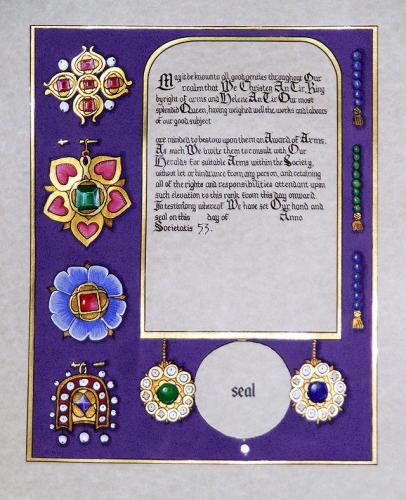 May it be known to all good gentles throughout Our
realm that We Christen An Tir, King
by right of arms and Helene An Tir Our most
splendid Queen, having weighed well the works and labours
of our good subject
are minded to bestow upon them an Award of Arms.
As such We invite them to consult with Our
Heralds for suitable Arms within the Society,
without let or hindrance from any person, and retaining
all of the rights and responsibilities attendant upon
such elevation to this rank from this day onward.
In testimony whereof We have set Our hand and
seal on this day of Anno
Societatis 53.
seal